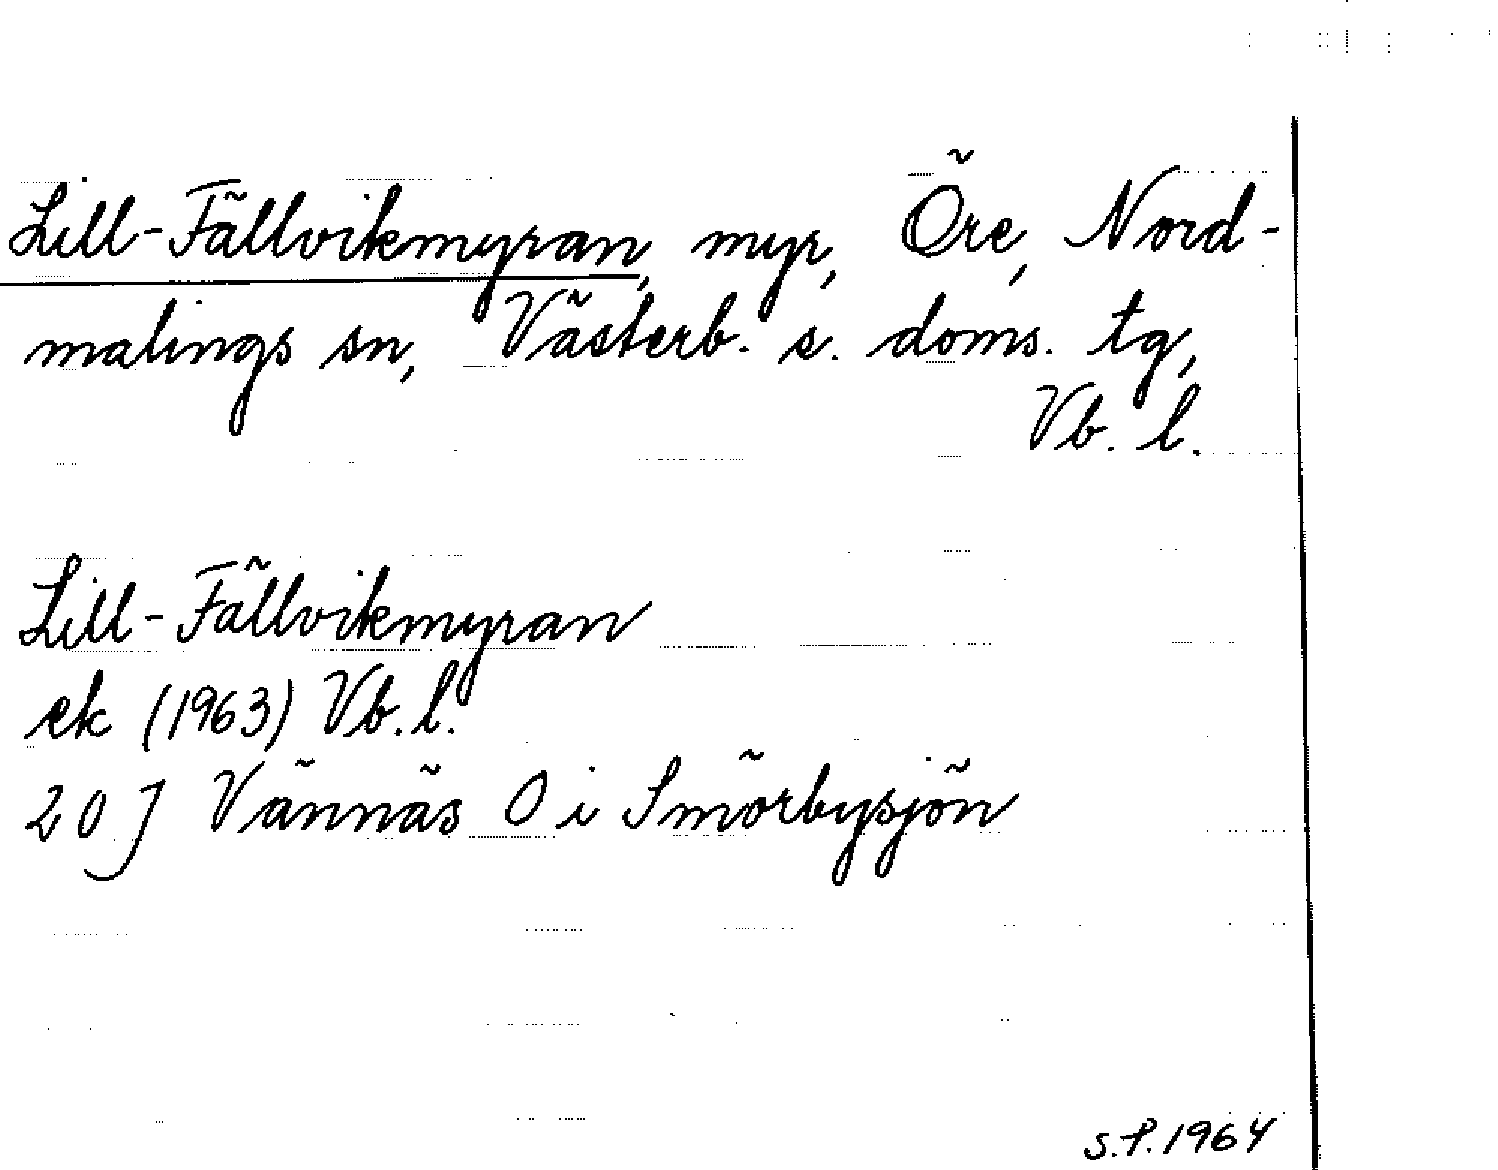 Lill-Fällvikmyran, myr, Öre, Nord-
malings sn, Västerb. s. doms. tg,
Vb. l.
Lill-Fällvikmyran
ek (1963) Vb. l.
20 J Vännäs O i Smörbysjön
S.P. 1964